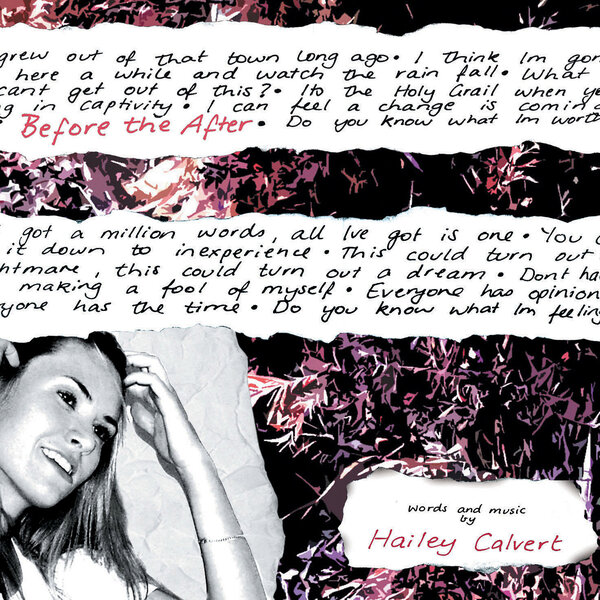 grew out of that town long ago • I think Im gon
here a while and watch the rain fall • What
cant get out of this? • Ito the Holy Grail when ye
ng in captivity • I can feel a change is coming
• Before the After • Do you know what Im worth
got a million words, all Ive got is one • You c
it down to inexperience • This could turn out
ghtmare, this could turn out a dream • Dont ha
making a fool of myself • Everyone has opinion
ryone has the time • Do you know what Im feeling
words and music
by
Hailey Calvert